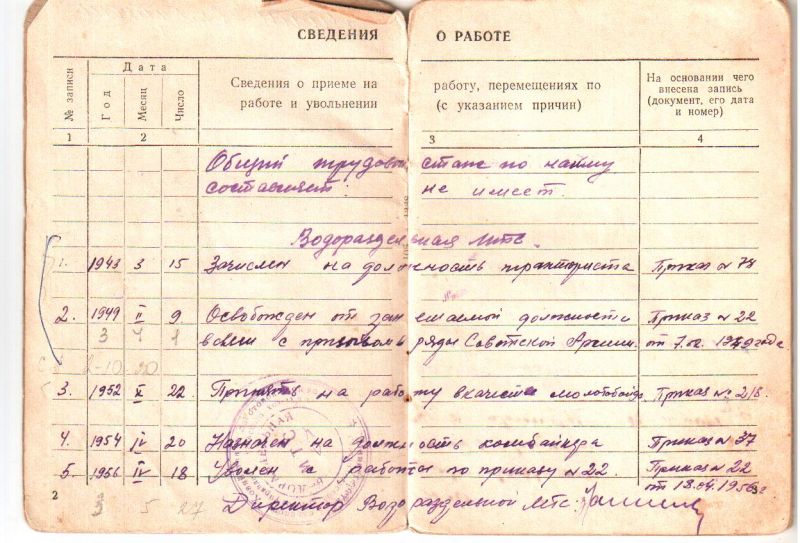 СВЕДЕНИЯ О РАБОТЕ
№ записи
Дата
Год
Месяц
Число
Сведения о приеме на работу, перемещениях по
работе и увольнении (с указанием причин)
На основании чего
внесена запись
(документ, его дата
и номер)
1 2 3 4
Общий трудовой стаж по найму
составляет: не имеет.
Водораздельная МТС.
1. 1943 3 15 Зачислен на должность тракториста Приказ № 78
2. 1949 II 9 Освобожден от занимаемой должности Приказ № 22
3 4 1 в связи с призывом ряды Советской Армии. от 7.02. 1949 года
2-10-20
3. 1952 X 22. Принять на работу в качестве молотобойца Приказ № 218.
4. 1954 IV 20 Назначен на должность комбайнера Приказ № 37
5. 1956 IV 18 Уволен с работы по приказу № 22. Приказ № 22
от 18.04.1956
2 3 5 27 Директор Водораздельной МТС: